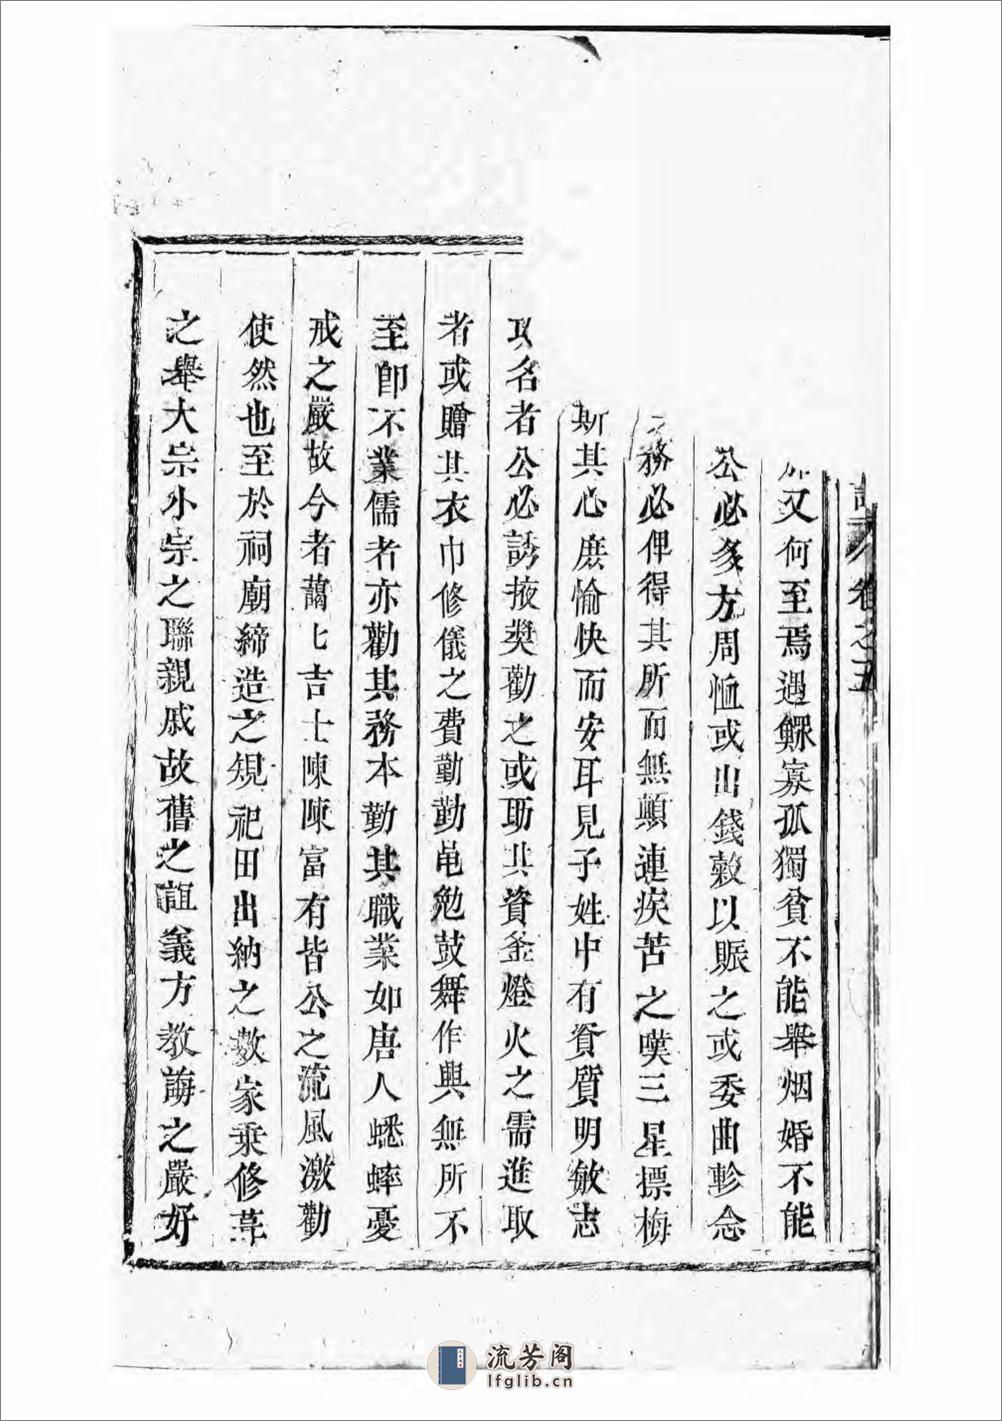 卷之五
又何至焉遇鰥寡孤獨貧不能舉烟婚不能
公必多方周恤或出錢穀以賑之或委曲軫念
務必俾得其所而無顛連疾苦之嘆三星摽梅
斯其心庶愉快而安耳見子姓中有資質明敏志
功名者公必誘掖奬勸之或助其資釜燈火之需進取
者或贈其衣巾修儀之費勤勤黽勉鼓舞作興無所不
至卽不業儒者亦勸其務本勤其職業如唐人蟋蟀憂
戒之嚴故今者藹七吉士陳陳富有皆公之流風激勸
使然也至於祠廟締造之規祀田出納之數家乗修葺
之舉大宗小宗之聯親戚故舊之誼義方教誨之嚴好
流芳阁
lfglib.cn